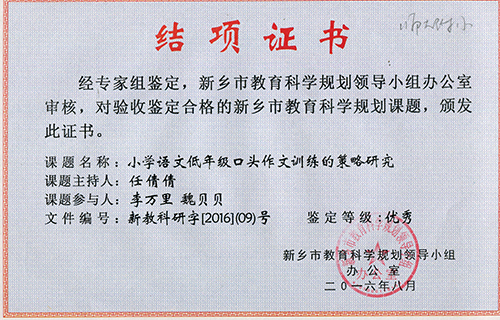 师大附小
结项证书
经专家组鉴定，新乡市教育科学规划领导小组办公室
审核，对验收鉴定合格的新乡市教育科学规划课题，颁发
此证书。
课题名称：小学语文低年级口头作文训练的策略研究
课题主持人：任倩倩
课题参与人：李万里 魏贝贝
文件编号：新教科研字[2016](09)号 鉴定等级：优秀
新乡市教育科学规划领导小组
办公室
二〇一六年八月